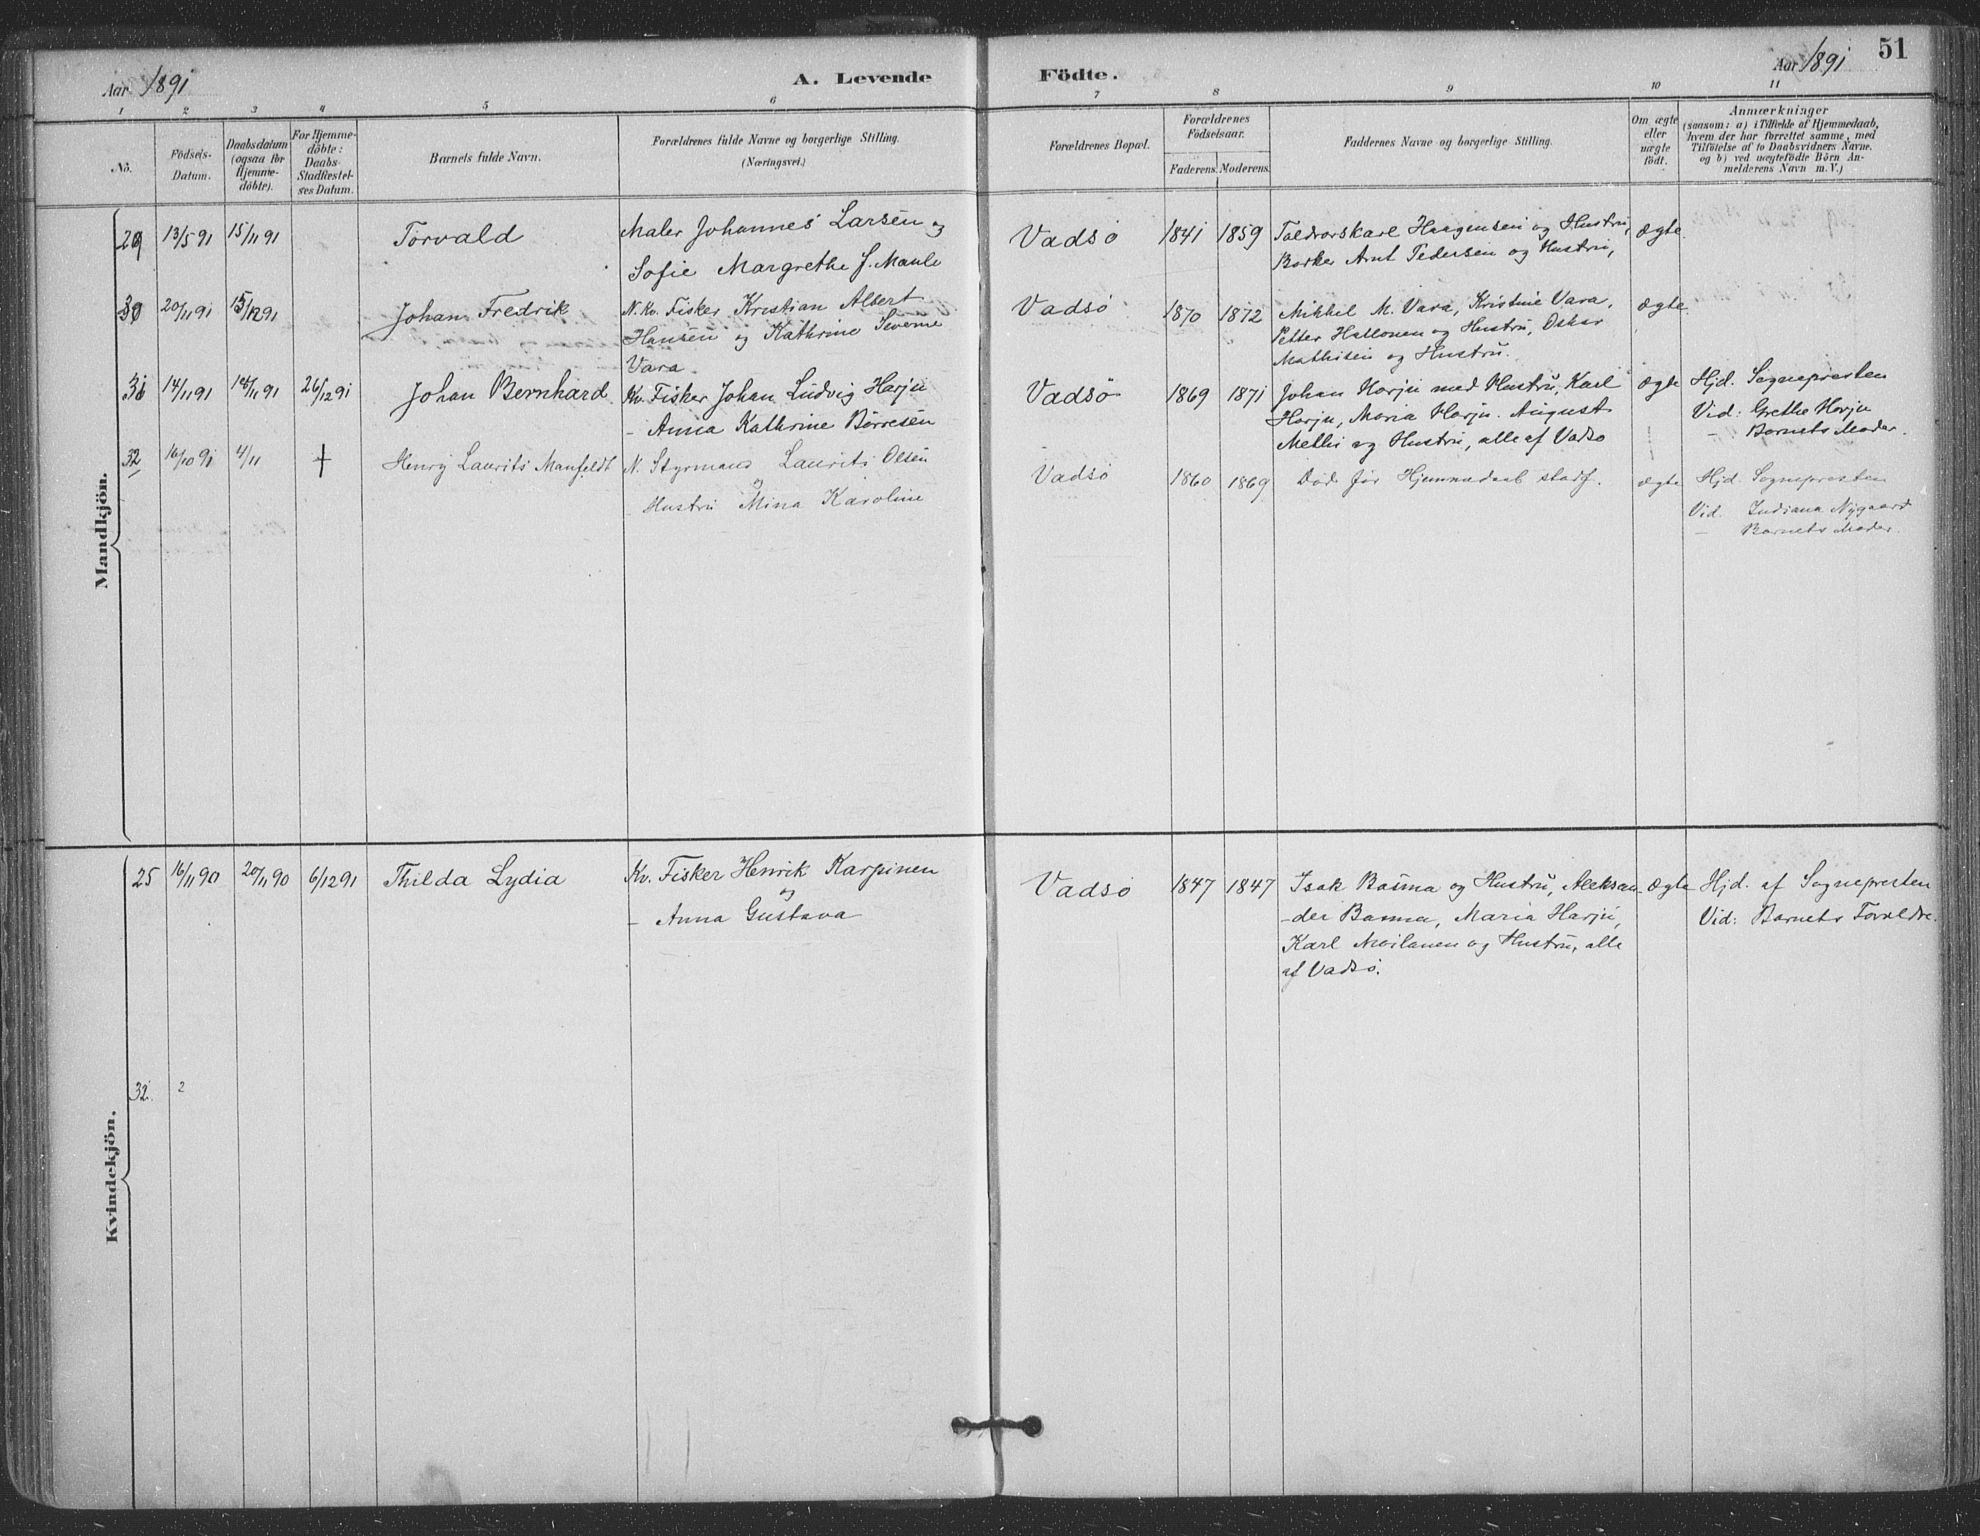 Aar 1891
A. Levende
Födte.
Aar 1891
51
1 2 3 4 5 6 7 8 9 10 11
No.
Födsels-
Datum.
Daabsdatum
(ogsaa for
Hjemme-
döbte).
For Hjemme-
döbte:
Daabs-
Stadfæstel-
ses Datum.
Barnets fulde Navn.
Forældrenes fulde Navne og borgerlige Stilling.
(Næringsvei.)
Forældrenes Bopæl.
Forældrenes
Födselsaar.
Faderens. Moderens.
Faddernes Navne og borgerlige Stilling.
Om ægte
eller
uægte
födt.
Anmærkninger
(saasom: a) i Tilfælde af Hjemmedaab,
hvem der har forrettet samme, med
Tilföielse af to Daabsvidners Navne.
og b) ved uægtefödte Börn An-
melderens Navn m.V.)
Mandkjön.
29 13/5 91 15/11 91 Torvald
Maler Johannes Larsen og
Sofie Margrethe f. Maule
Vadsø 1841 1859
Toldrorskarl Haagensen og Hustru,
Arnt Pedersen og Hustru,
ægte
30 20/11 91 /12 91 Johan Fredrik
N. Kv. Fisker Kristian Albert
Hansen og Kathrine Severine
Vara
Vadsø 1870 1872
Mikkel M. Vara, Kristine Vara,
Petter og Hustru, Oskar
Mathisen og Hustru.
ægte
31 14/11 91 /11 91 26/12 91 Johan Bernhard
Kv. Fisker Johan Ludvig Harju
- Anna Kathrine Børresen
Vadsø 1869 1871
Johan Harju med Hustru, Karl
Harju, Maria Harju. August
og Hustru, alle af Vadsø
ægte
Hjd. Sognepresten
Vid: Grethe Harju
- Barnets Moder.
32 16/10 91 4/11 † Henry Laurits Manfeldt
N. Styrmand Laurits Olsen
og
Hustru Mina Karoline
Vadsø 1860 1869
Død før Hjemmedaab stadf.
ægte
Hjd. Sognepresten
Vid. Indiana Nygaard
- Barnets Moder.
Kvindekjön.
25 16/11 90 20/11 90 6/12 91 Thilda Lydia
Kv. Fisker Henrik Karpinen
og
- Anna Gustava
Vadsø 1847 1847
Isak Basma og Hustru, Aleksan-
-der Basma, Maria Harju,
Karl Moilanen og Hustru, alle
af Vadsø.
Ægte
Hjd. af Sognepresten
Vid: Barnets Forældre.
32. 2